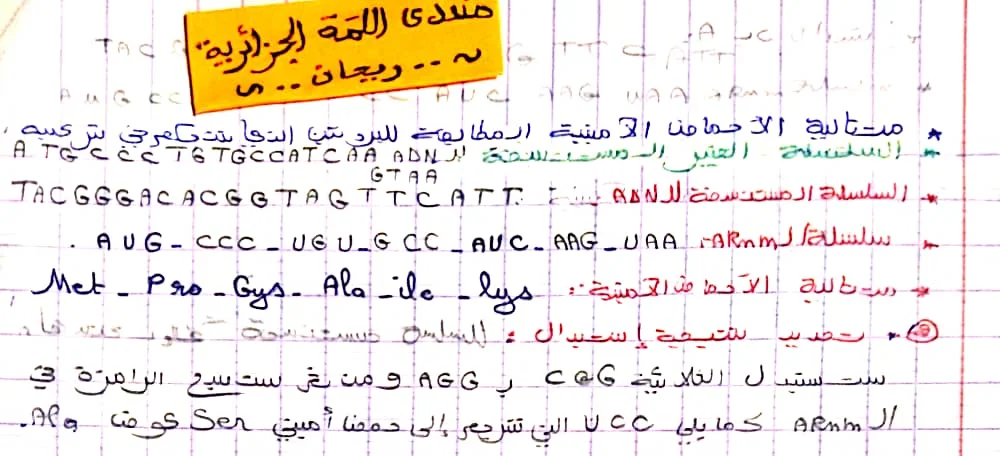 منتدى اللمة الجزائرية
~ .. ريحان .. ~
TAC TT C ATT A
AUGCC CC AUC AAG UAA ARNm
* متتالية الأحماض الأمينية المطابقة للبروتين التي في تركيبه.
* السلسلة الغير المستنسخة للـ ADN ATGCCCTGTGCCATCAA
GTAA
* السلسلة المستنسخة للـ ADN TACGGGACACGGTAGTTCATT
* سلسلة الـ ARNm AUG_CCC_UGU_GCC_AUC_AAG_UAA .
* متتالية الأحماض الأمينية: Met_Pro_Gys_Ala_ile_lys
* تحديد نتيجة إستبدال : مستنسخة
ستستبدل الثلاثية CGG بـ AGG و من ثم ستصبح الرامزة في
الـ ARNm كمايلي UCC التي تترجم إلى حمض أميني Ser عوض Ala.